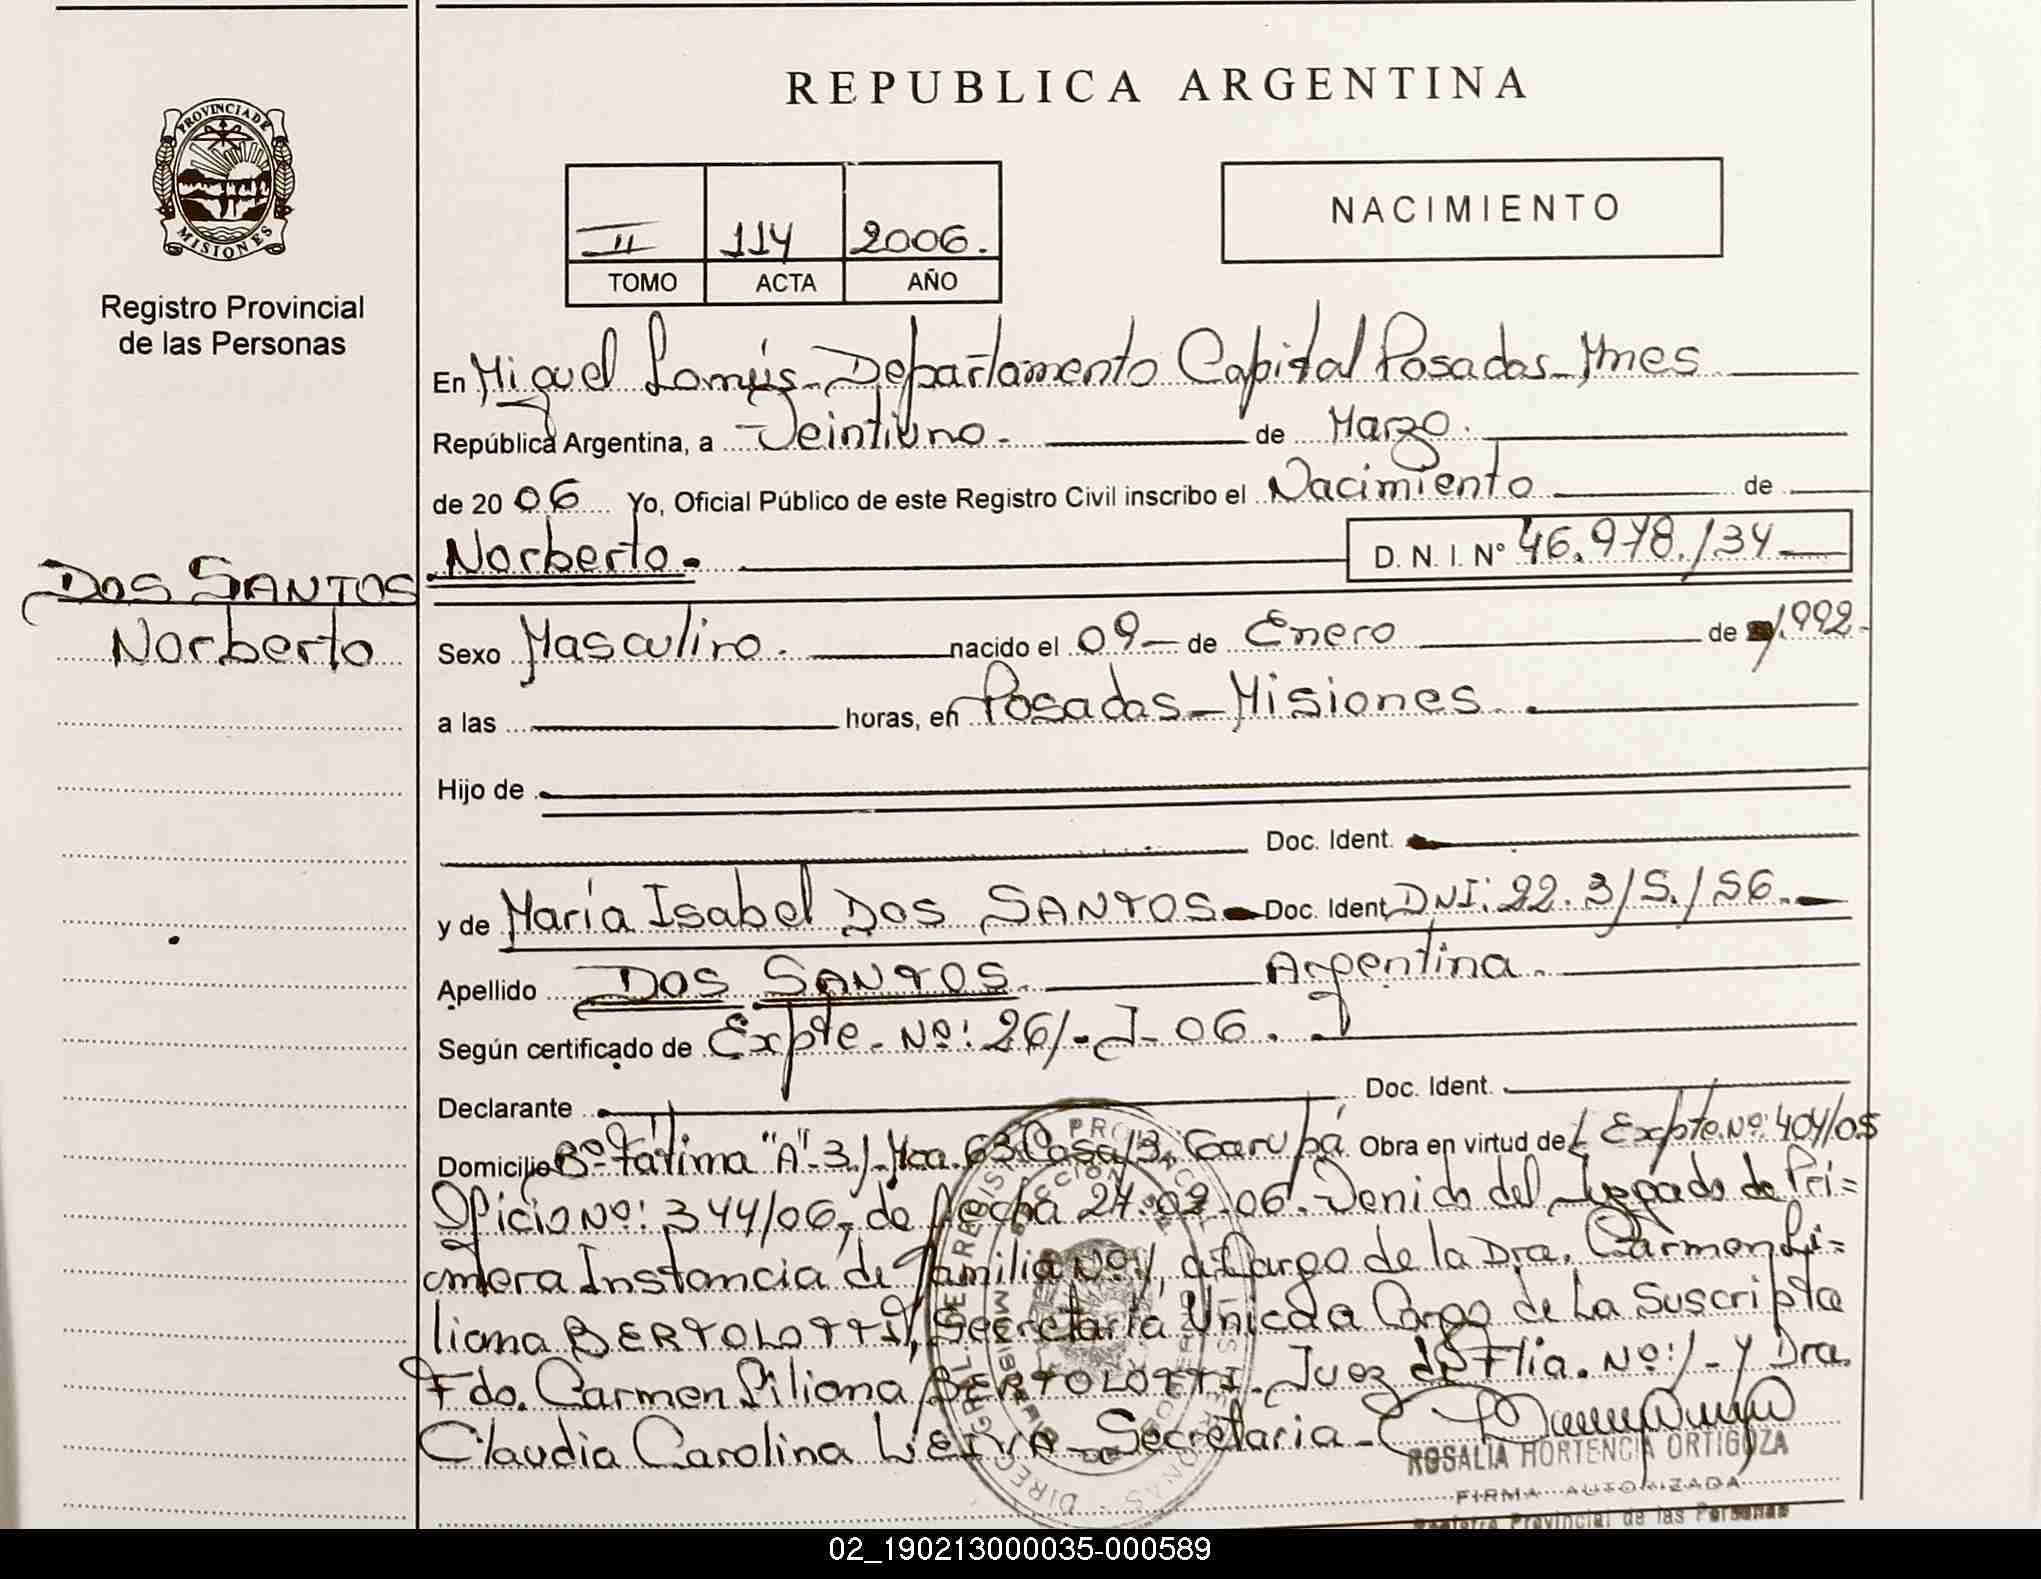 REPUBLICA ARGENTINA
PROVINCIA DE
MISIONES
Registro Provincial
de las Personas
II 114 2006.
TOMO ACTA AÑO
NACIMIENTO
En Miguel Lanús - Departamento Capital Posadas - Mnes
República Argentina, a Veintiuno - de Marzo.
de 2006 Yo, Oficial Público de este Registro Civil inscribo el Nacimiento de
Norberto. D. N. I. Nº 46.978.134
DOS SANTOS
Norberto
Sexo Masculino. nacido el 09 - de Enero de 1.992-
a las horas, en Posadas - Misiones.
Hijo de
Doc. Ident.
y de María Isabel DOS SANTOS - Doc. Ident. DNI: 22.315.156.-
Apellido DOS SANTOS. Argentina.
Según certificado de Expte. Nº: 261-J-06.
Declarante Doc. Ident.
Domicilio Bº Fátima "A" 3.). Mza. 63 Casa 13. Garupá. Obra en virtud del Expte. Nº: 404/05
Oficio Nº: 344/06, de fecha 24.02.06. Venido del Juzgado de Pri=
mera Instancia de Familia Nº 1, a Cargo de la Dra. Carmen Li=
liana BERTOLOTTI, Secretaría Unica a Cargo de La Suscripta
Fdo. Carmen Liliana BERTOLOTTI. Juez de Flia. Nº: 1 - y Dra.
Claudia Carolina LEIVA - Secretaria -
ROSALIA HORTENCIA ORTIGOZA
FIRMA AUTORIZADA
Registro Provincial de las Personas
02_190213000035-000589